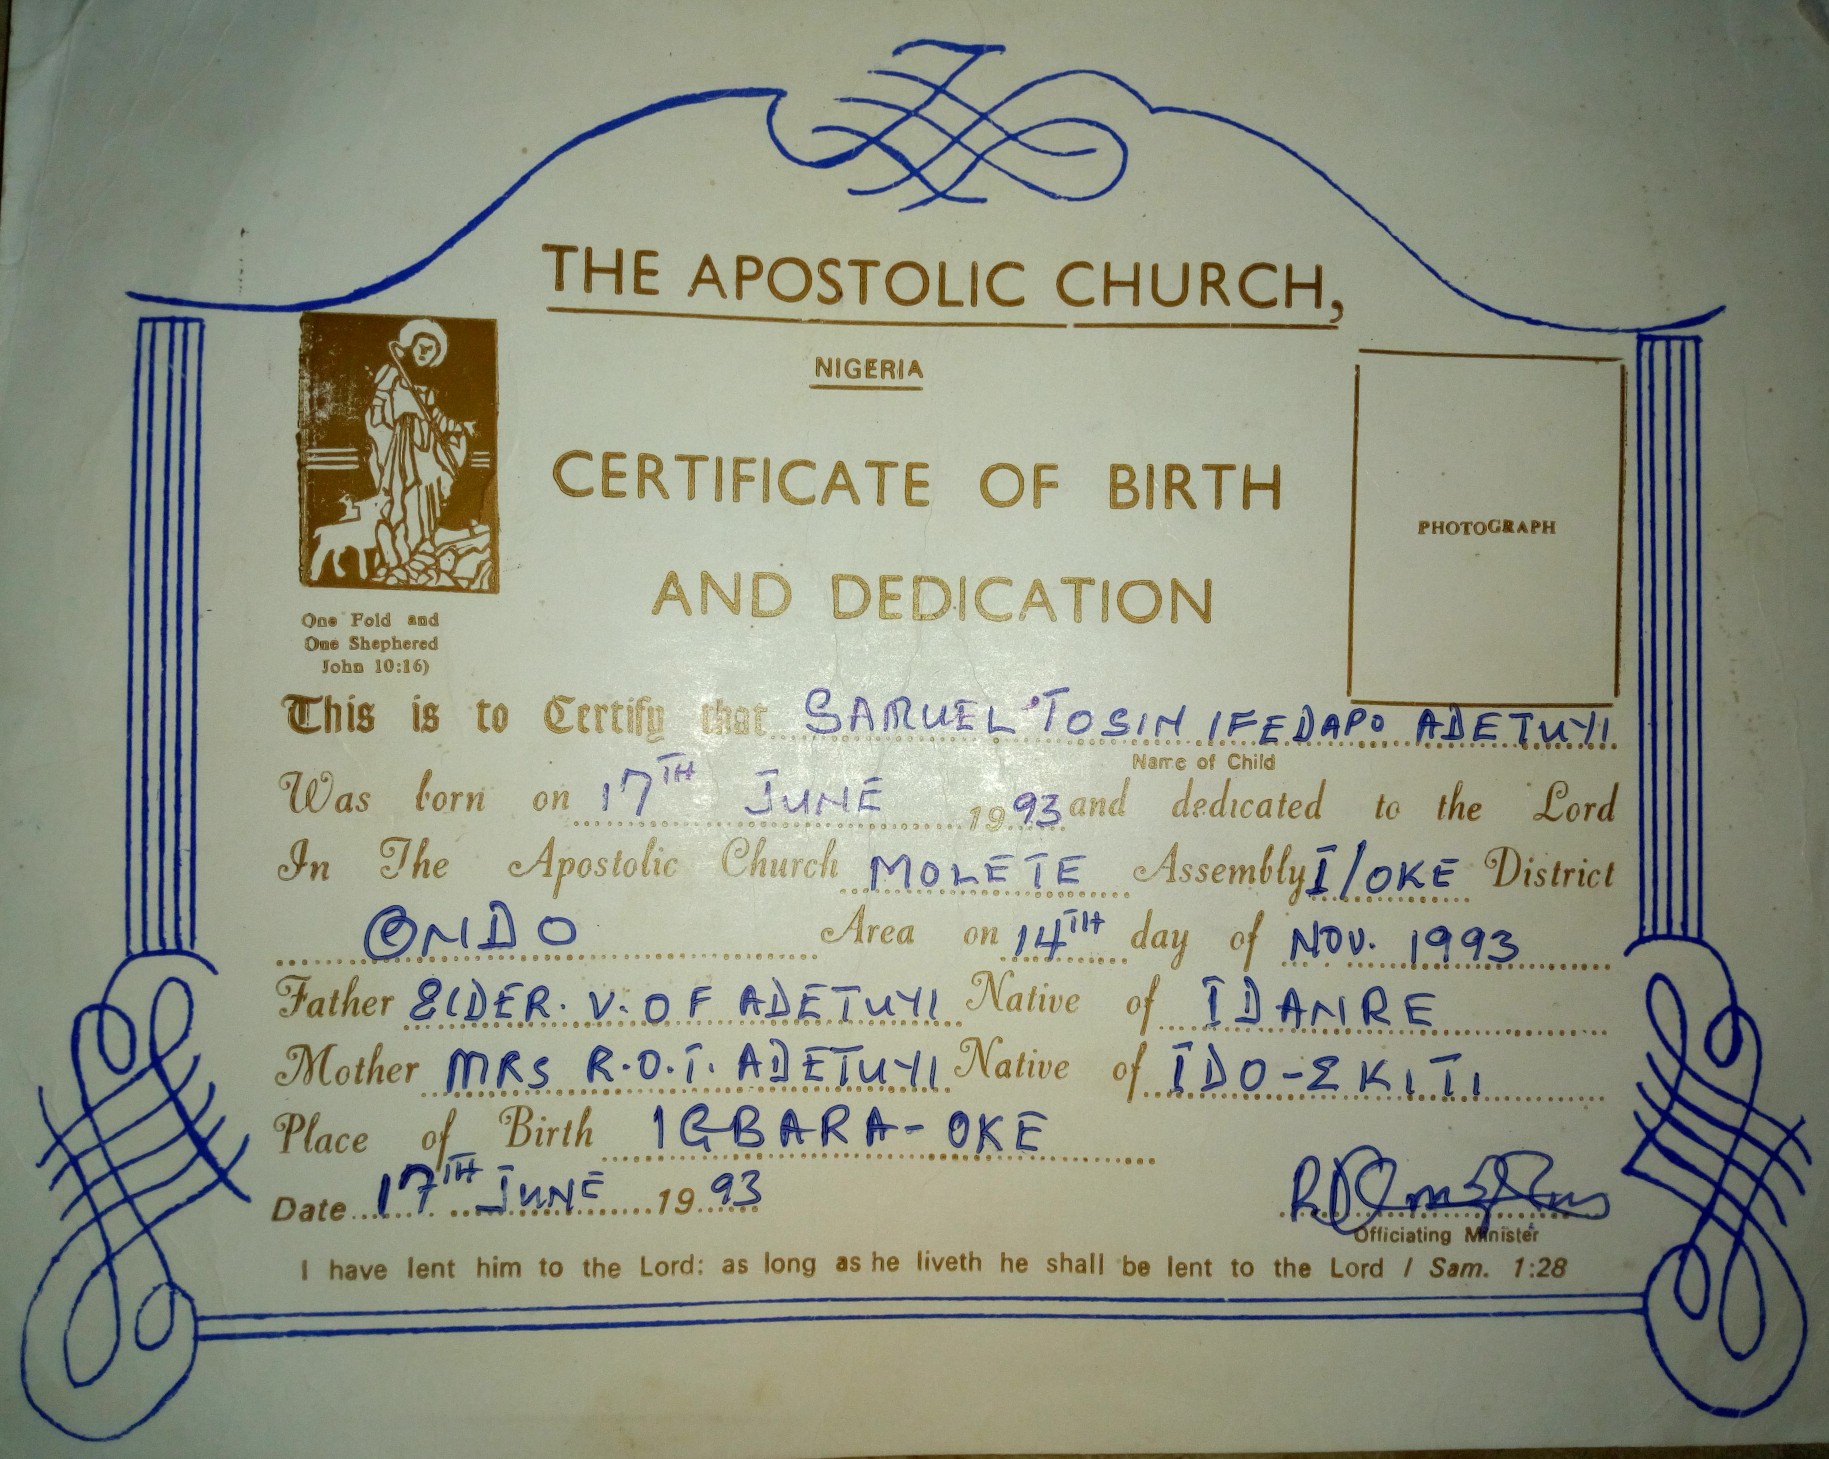 THE APOSTOLIC CHURCH,
NIGERIA
CERTIFICATE OF BIRTH
AND DEDICATION
PHOTOGRAPH
One Fold and
One Shephered
John 10:16)
This is to Certify that SAMUEL 'TOSIN IFEDAPO ADETUYI
Name of Child
Was born on 17TH JUNE 1993 and dedicated to the Lord
In The Apostolic Church MOLETE Assembly I/OKE District
ONDO Area on 14TH day of NOV. 1993
Father ELDER. V. OF ADETUYI Native of IDANRE
Mother MRS R.O.T. ADETUYI Native of IDO-EKITI
Place of Birth IGBARA-OKE
Date 17TH JUNE 1993
Officiating Minister
I have lent him to the Lord: as long as he liveth he shall be lent to the Lord I Sam. 1:28